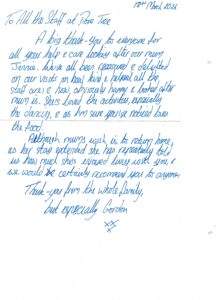 18th March 2026
To All the Staff at Pear Tree
A big thank-you to everyone for
all your help & care looking after our mum
We've all been reassured & delighted
on our visits on how kind & helpful all the
staff are, & how obviously happy & looked after
mum is. She's loved the activities, especially
the dancing, & as I'm sure you've noticed loves
the food.
Although mum's wish is to return home,
as her stay extended she has repeatedly told
us how much she's enjoyed living with you &
we would certainly recommend you to anyone.
Thank-you from the whole family,
but especially Gordon
xx
x